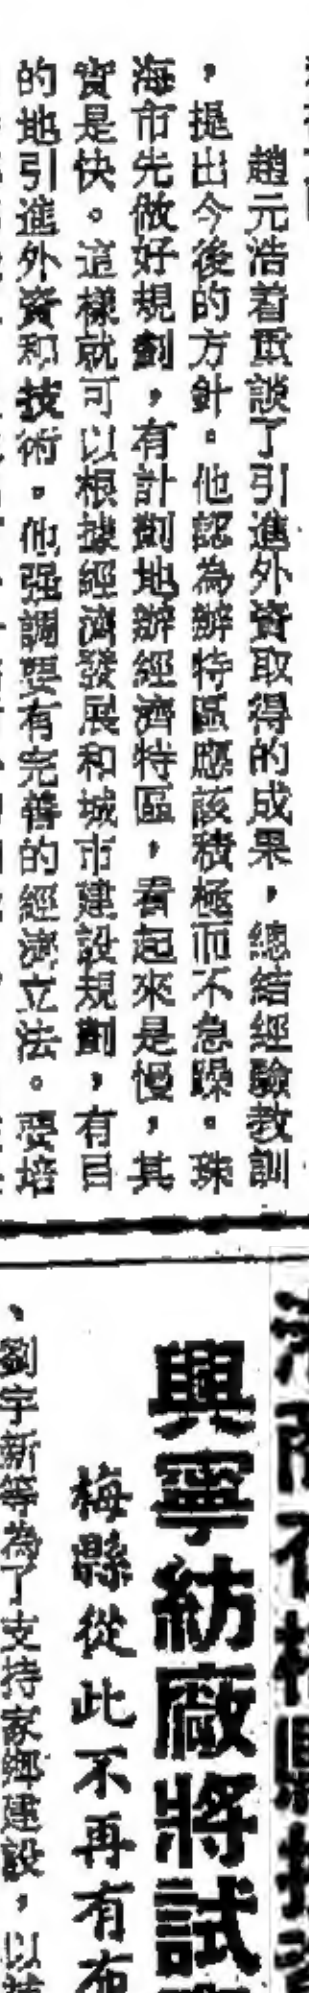 趙元浩着重談了引進外資取得的成果，總結經驗教訓
，提出今後的方針。他認為辦特區應該積極而不急躁。珠
海市先做好規劃，有計劃地辦經濟特區，看起來是慢，其
實是快。這樣就可以根據經濟發展和城市建設規劃，有目
的地引進外資和技術。他强調要有完善的經濟立法。要培
興寧紡廠將試
梅縣從此不再有布
、劉宇新等為了支持家鄉建設，以